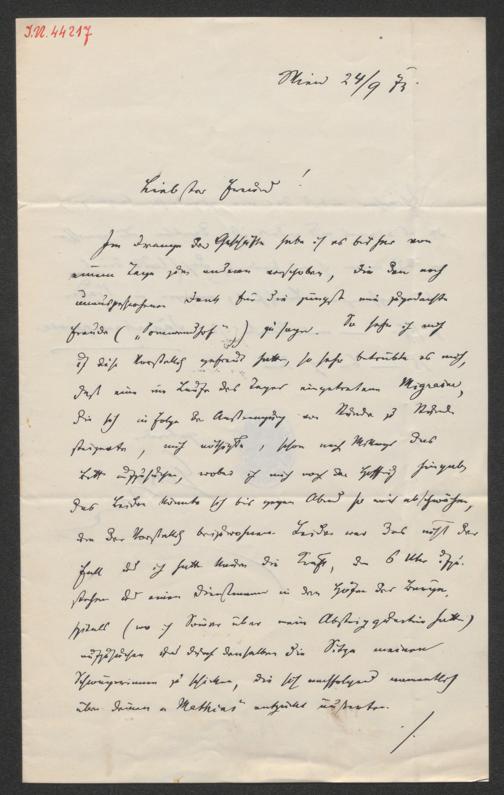 I.N. 44217
Wien 24/9 73.
Liebster Freund!
Im Drange der Geschäfte habe ich es bisher von
einem Tage zum anderen verschoben, Dir den noch
unausgesprochenen Dank für die jüngst mir zugedachte
Freude („Sonnwendhof“) zu sagen. So sehr ich mich
auf diese Vorstellung gefreut hatte, so sehr betrübte es mich,
daß eine im Laufe des Tages eingetretene Migraine,
die sich in Folge der Anstrengung von Stunde zu Stunde
steigerte, mich nöthigte, schon nach Mittag das
Bett aufzusuchen, wobei ich mich noch der Hoffnung hingab,
das Leiden könnte sich bis gegen Abend so weit abschwächen,
um der Vorstellung beizuwohnen. Leider war das nicht der
Fall und ich hatte kaum die Kraft, um 6 Uhr aufzu-
stehen und einen Dienstmann in den Höfen des Bürger-
spitals (wo ich Sommer über mein Absteigquartier hatte)
aufzusuchen und durch denselben die Sitze meinen
Schwägerinnen zu schicken, die sich nachfolgend namentlich
über Deinen „Mathias“ entzückt äußerten.
./.